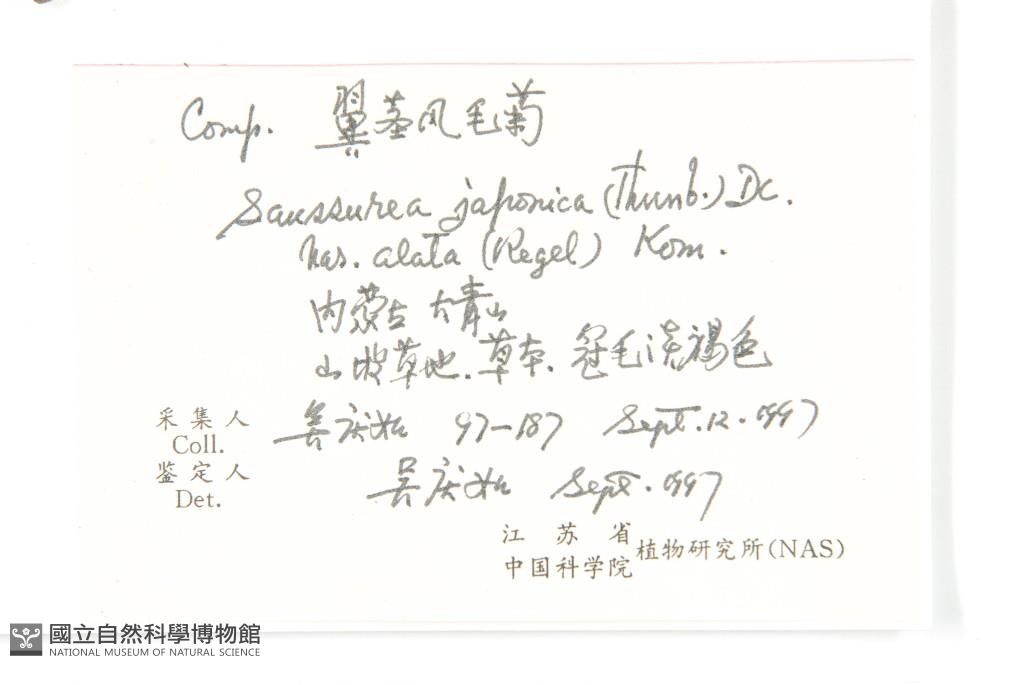 Comp. 翼茎风毛菊
Saussurea japonica (Thunb.) DC.
var. alata (Regel) Kom.
内蒙古 大青山
山坡草地. 草本. 冠毛淡褐色
采集人 吴庆如 97-187 Sept. 12. 1997
Coll.
鉴定人 吴庆如 Sept. 1997
Det.
江苏省
中国科学院 植物研究所(NAS)
國立自然科學博物館
NATIONAL MUSEUM OF NATURAL SCIENCE